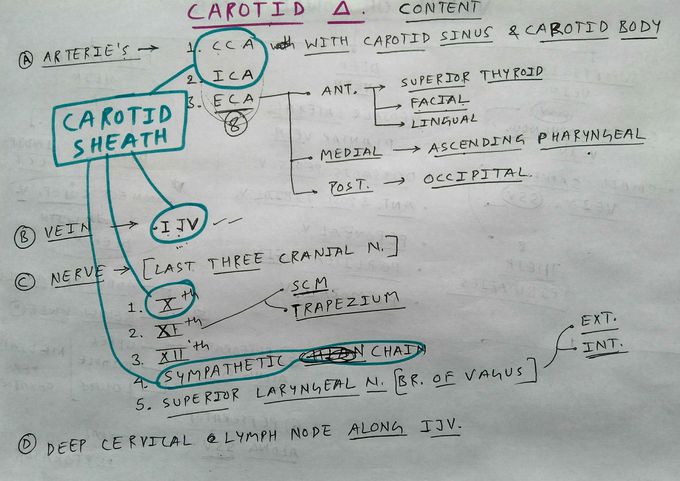 CAROTID Δ CONTENT
Ⓐ ARTERIE'S → 1. CCA with WITH CAROTID SINUS & CAROTID BODY
2. ICA
3. ECA
8
ANT. → SUPERIOR THYROID
FACIAL
LINGUAL
MEDIAL → ASCENDING PHARYNGEAL
POST. → OCCIPITAL.
CAROTID
SHEATH
Ⓑ VEIN → IJV
Ⓒ NERVE → [LAST THREE CRANIAL N.]
1. Xth
2. XIth
SCM
TRAPEZIUM
3. XIIth
4. SYMPATHETIC CHAIN
5. SUPERIOR LARYNGEAL N. [BR. OF VAGUS]
EXT.
INT.
Ⓓ DEEP CERVICAL LYMPH NODE ALONG IJV.